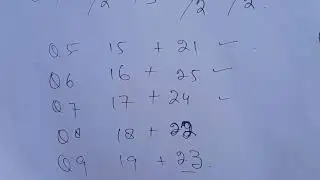 Q5 15 + 21 ✓
Q6 16 + 25 ✓
Q7 17 + 24 ✓
Q8 18 + 22
Q9 19 + 23.